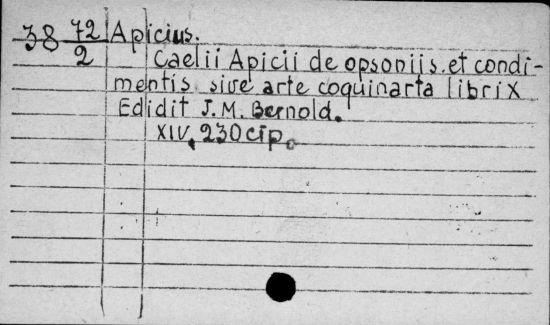 38 72/2 Apicius.
Caelii Apicii de opsoniis et condi-
mentis sive arte coquinarta libri X
Edidit J. M. Bernold.
XIV, 230 cтр.